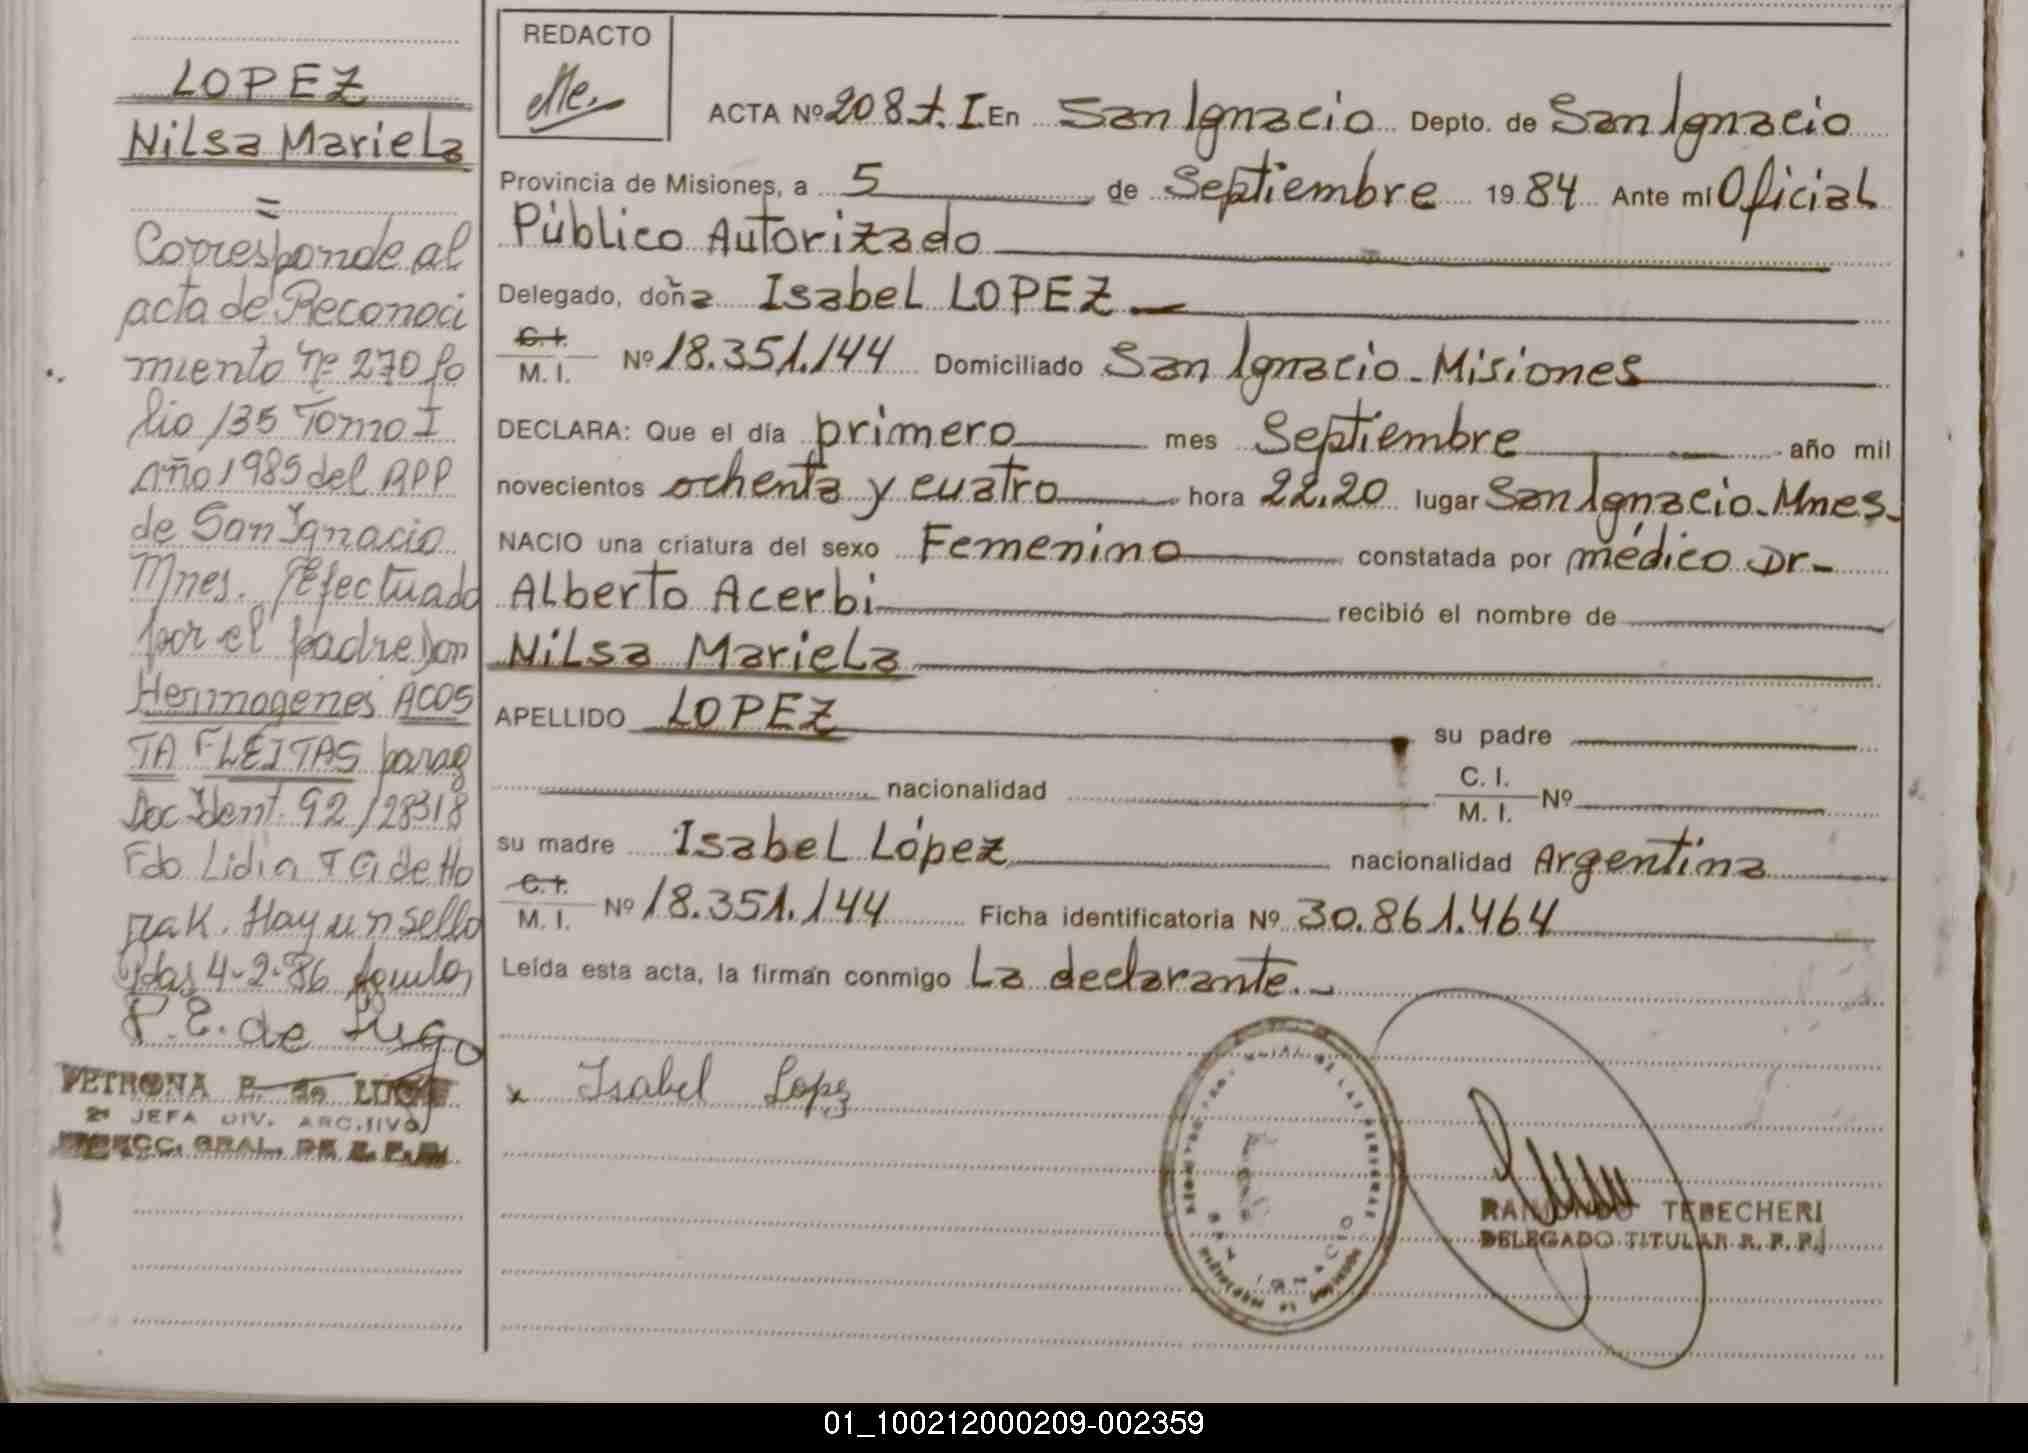 LOPEZ
Nilsa Mariela
=
Corresponde al
acta de Reconoci
miento Nº 270 fo
lio 135 Tomo I
Año 1985 del RPP
de San Ignacio
Mnes. Efectuado
por el padre Don
Hermogenes ACOS
TA FLEITAS parag
Doc Ident. 92/28318
Fdo Lidia T G de Ho
. Hay un sello
Pdas 4-2-86
P. E. de Lugo
PETRONA E. de LUGO
2ª JEFA DIV. ARCHIVO
DIRECC. GRAL. DE R. P. P.
REDACTO
ACTA Nº 208 t. I En San Ignacio Depto. de San Ignacio
Provincia de Misiones, a 5 de Septiembre 19 84 Ante mí Oficial
Público Autorizado
Delegado, doña Isabel LOPEZ
C.I.
M. I. Nº 18.351.144 Domiciliado San Ignacio - Misiones
DECLARA: Que el día primero mes Septiembre año mil
novecientos ochenta y cuatro hora 22.20 lugar San Ignacio - Mnes.
NACIO una criatura del sexo Femenino constatada por médico Dr-
Alberto Acerbi recibió el nombre de
Nilsa Mariela
APELLIDO LOPEZ su padre
nacionalidad C. I.
M. I. Nº
su madre Isabel López nacionalidad Argentina
C.I.
M. I. Nº 18.351.144 Ficha identificatoria Nº 30.861.464
Leída esta acta, la firman conmigo La declarante.-
x Isabel Lopez
RAIMUNDO TEBECHERI
DELEGADO TITULAR R. P. P.
01_100212000209-002359